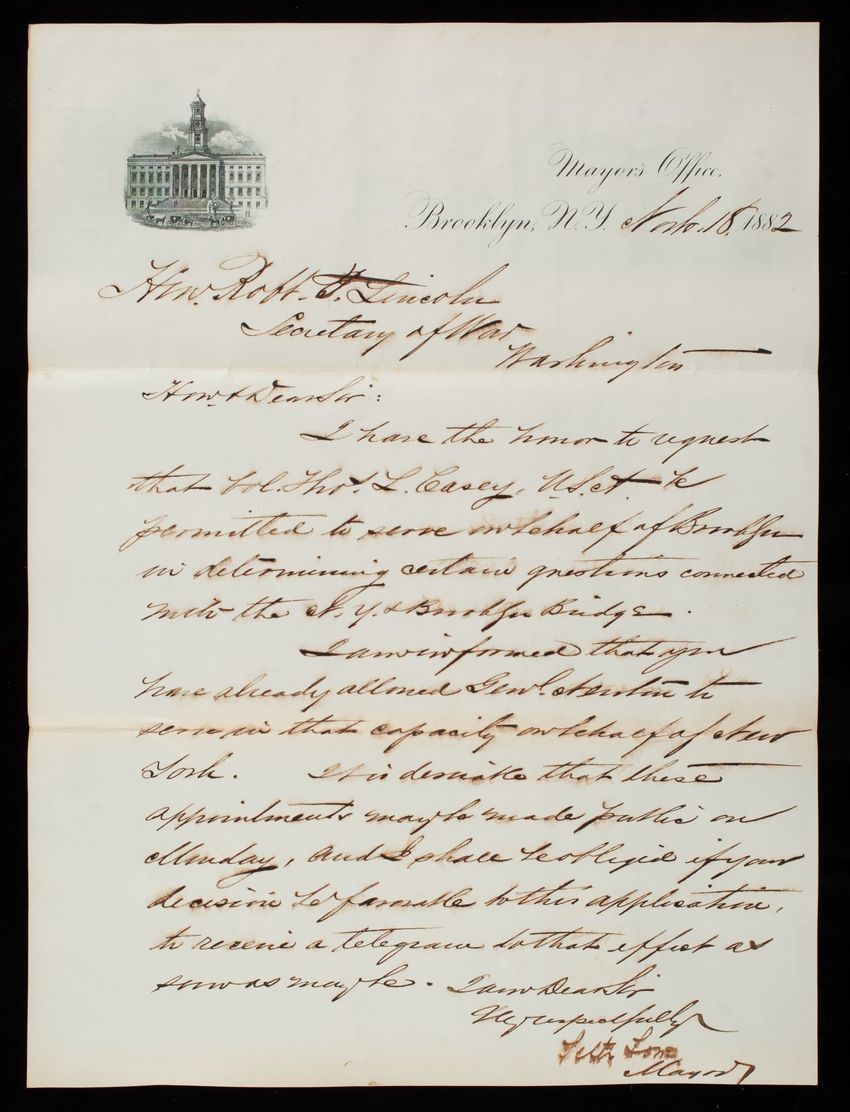 Mayor's Office,
Brooklyn, N.Y. Nov. 18. 1882
Hon. Robt. T. Lincoln
Secretary of War
Washington
Hon. & Dear Sir:
I have the honor to request
that Col. Thos. L. Casey, U.S.A. be
permitted to serve on behalf of Brooklyn
in determining certain questions connected
with the N.Y. & Brooklyn Bridge.
I am informed that you
have already allowed Genl. Newton to
serve in that capacity on behalf of New
York. It is desirable that these
appointments may be made public on
Monday, and I shall be obliged if your
decision be favorable to this application,
to receive a telegram to that effect as
soon as may be. I am Dear Sir
Very respectfully
Seth Low
Mayor